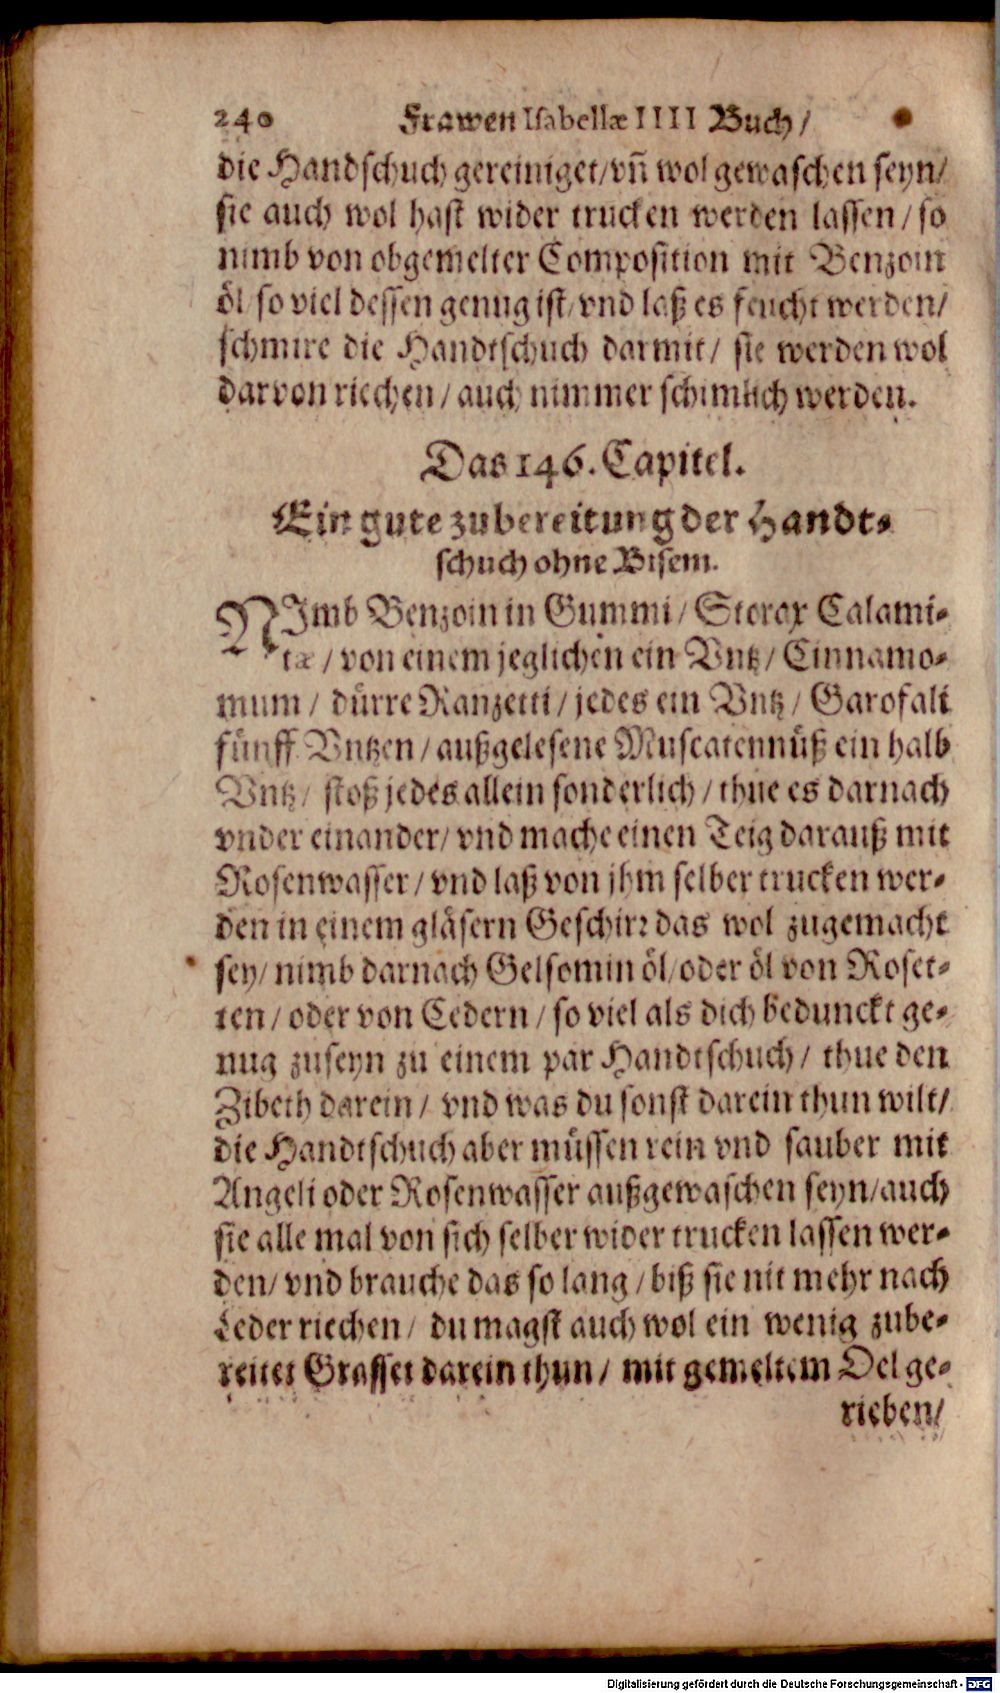 240 Frawen Isabellæ IIII Buch/
die Handschuch gereiniget/vñ wol gewaschen seyn/
sie auch wol hast wider trucken werden lassen/so
nimb von obgemelter Composition mit Benzoin
öl/so viel dessen genug ist/vnd laß es feucht werden/
schmire die Handtschuch darmit/ sie werden wol
darvon riechen/auch nimmer schimlich werden.
Das 146. Capitel.
Ein gute zubereitung der Handt-
schuch ohne Bisem.
NImb Benzoin in Gummi/Storax Calami-
tæ/von einem jeglichen ein Vntz/Cinnamo-
mum/ dürre Ranzetti/jedes ein Vntz/Garofali
fünff Vntzen/außgelesene Muscatennüß ein halb
Vntz/ stoß jedes allein sonderlich/thue es darnach
vnder einander/vnd mache einen Teig darauß mit
Rosenwasser/vnd laß von jhm selber trucken wer-
den in einem gläsern Geschirr das wol zugemacht
sey/nimb darnach Gelsomin öl/oder öl von Roset-
ten/oder von Cedern/so viel als dich bedunckt ge-
nug zuseyn zu einem par Handtschuch/ thue den
Zibeth darein/ vnd was du sonst darein thun wilt/
die Handtschuch aber müssen rein vnd sauber mit
Angeli oder Rosenwasser außgewaschen seyn/auch
sie alle mal von sich selber wider trucken lassen wer-
den/vnd brauche das so lang/biß sie nit mehr nach
Leder riechen/ du magst auch wol ein wenig zube-
reitet Grasset darein thun/ mit gemeltem Oel ge-
rieben/
Digitalisierung gefördert durch die Deutsche Forschungsgemeinschaft - DFG